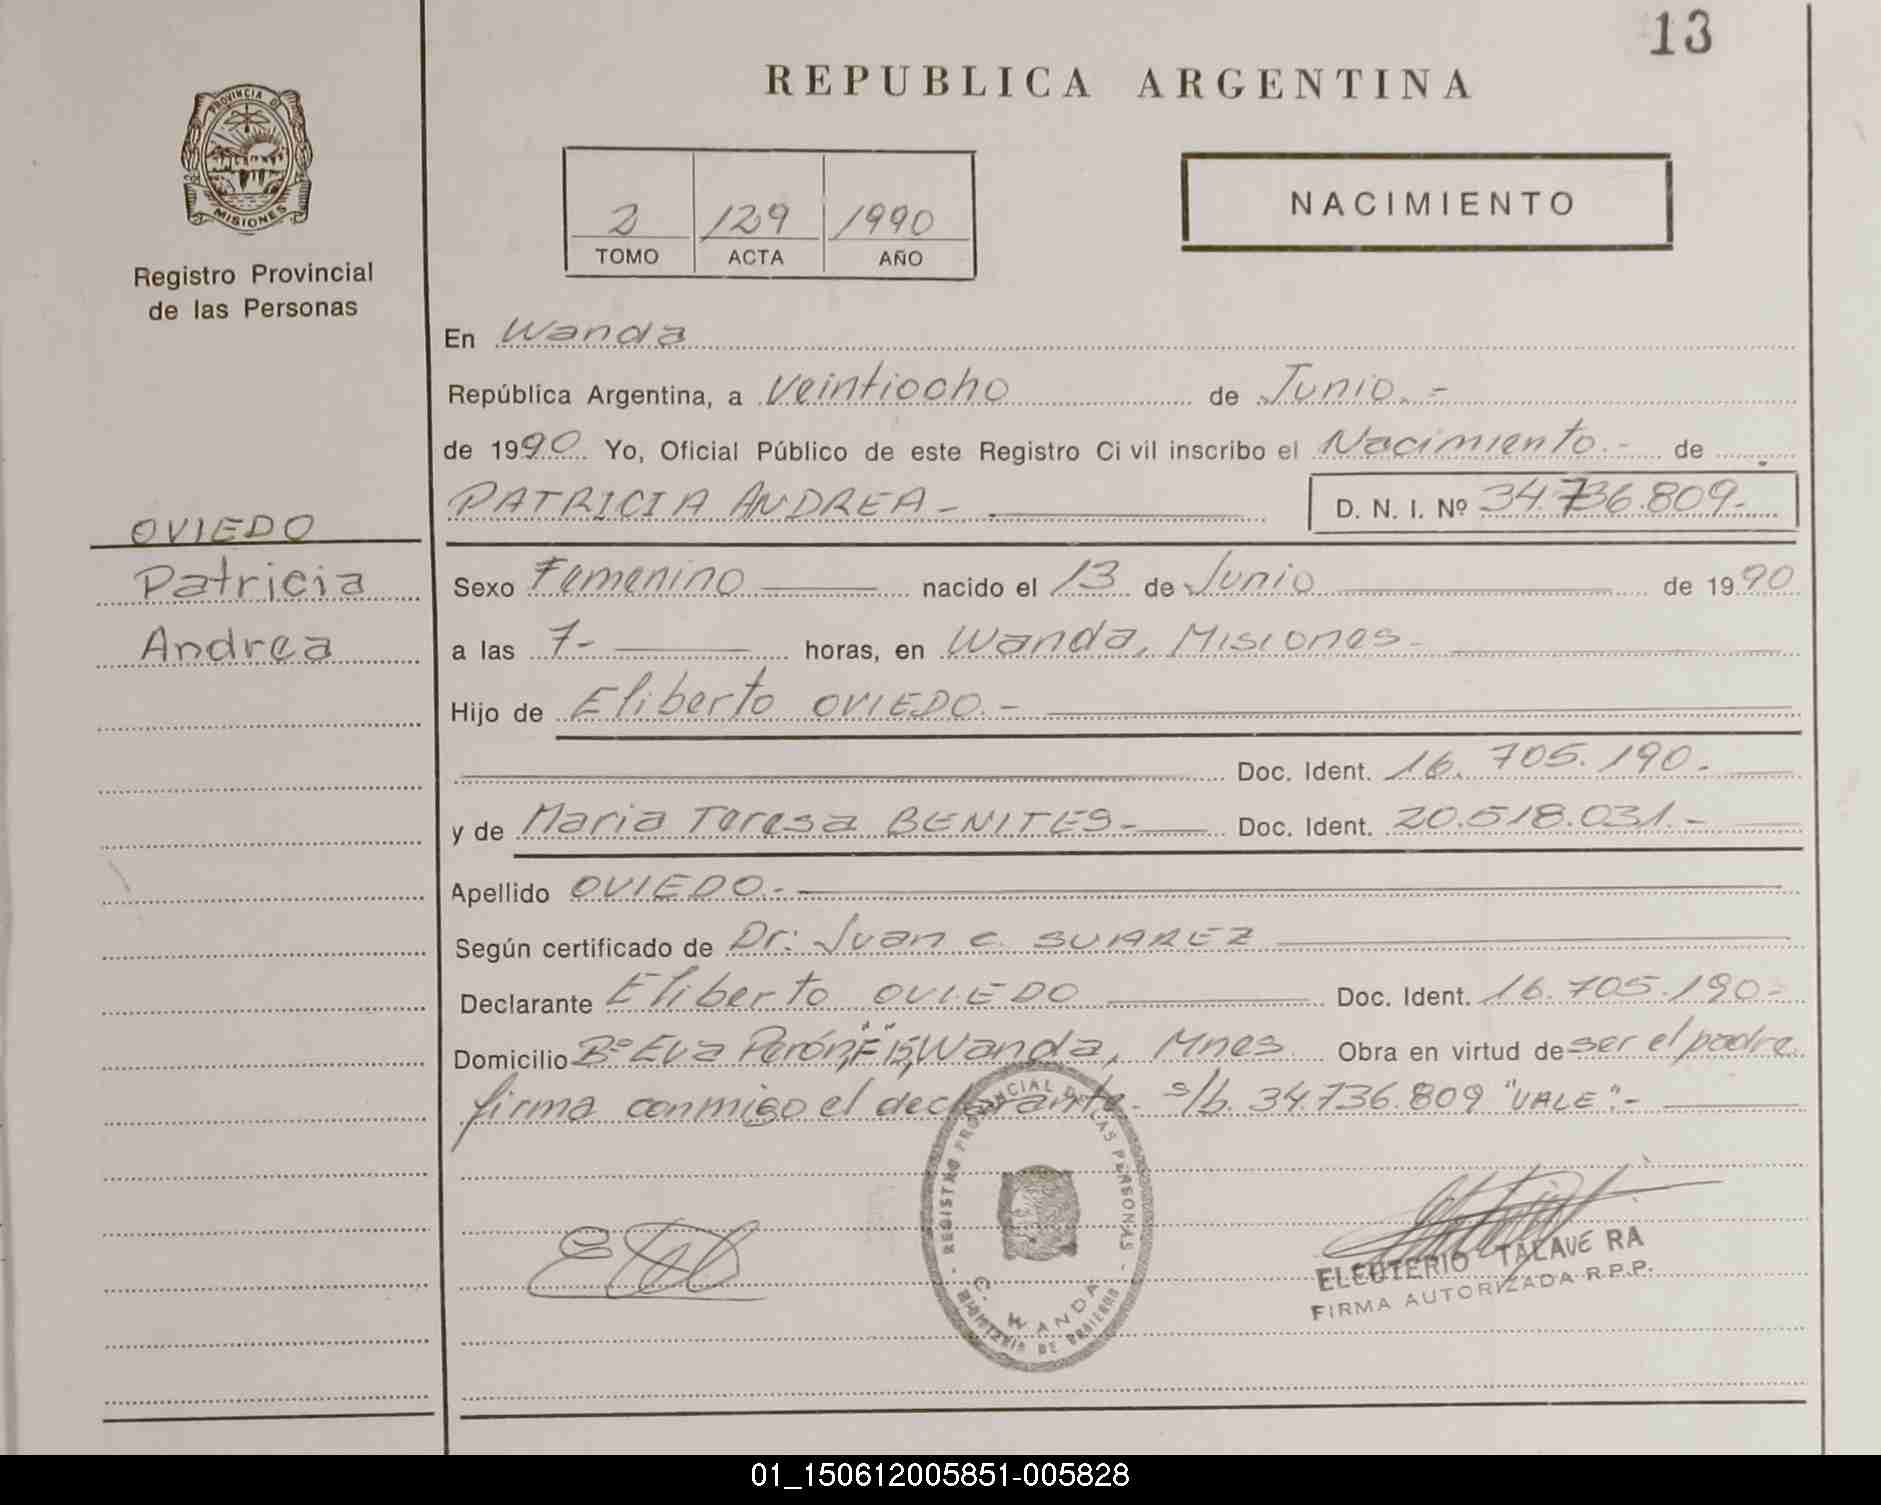 13
REPUBLICA ARGENTINA
PROVINCIA DE
MISIONES
Registro Provincial
de las Personas
2 129 1990
TOMO ACTA AÑO
NACIMIENTO
En Wanda
República Argentina, a Veintiocho de Junio.-
de 1990 Yo, Oficial Público de este Registro Civil inscribo el Nacimiento.- de
PATRICIA ANDREA- D. N. I. Nº 34.736.809-
OVIEDO
Patricia
Andrea
Sexo Femenino nacido el 13 de Junio de 1990
a las 7- horas, en Wanda, Misiones-
Hijo de Eliberto OVIEDO.-
Doc. Ident. 16.705.190.-
y de Maria Teresa BENITES- Doc. Ident. 20.518.031.-
Apellido OVIEDO.-
Según certificado de Dr: Juan C. SUAREZ
Declarante Eliberto OVIEDO Doc. Ident. 16.705.190-
Domicilio Bº Eva Perón, "F" 15, Wanda, Mnes Obra en virtud de ser el padre
firma conmigo el declarante- s/b. 34.736.809 "VALE".-
REGISTRO PROVINCIAL DE LAS PERSONAS
C. WANDA
MINISTERIO DE GOBIERNO
ELEUTERIO TALAVERA
FIRMA AUTORIZADA R.P.P.
01_150612005851-005828